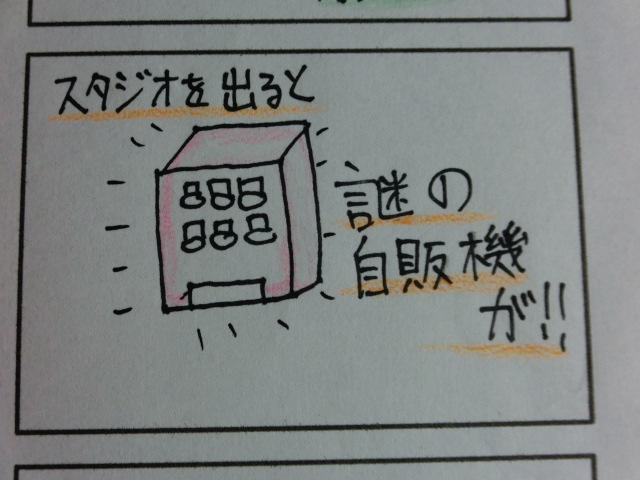 スタジオを出ると
謎の
自販機
が!!